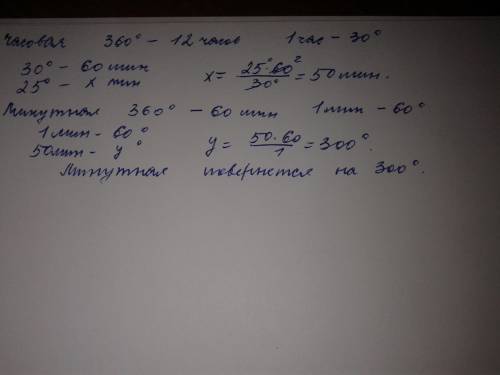 Часовая 360° – 12 часов 1 час – 30°
30° – 60 мин
25° – x мин x = 25°·60² / 30° = 50 мин.
Минутная 360° – 60 мин 1 мин – 60°
1 мин – 60°
50 мин – y° y = 50·60 / 1 = 300°.
Минутная повернется на 300°.